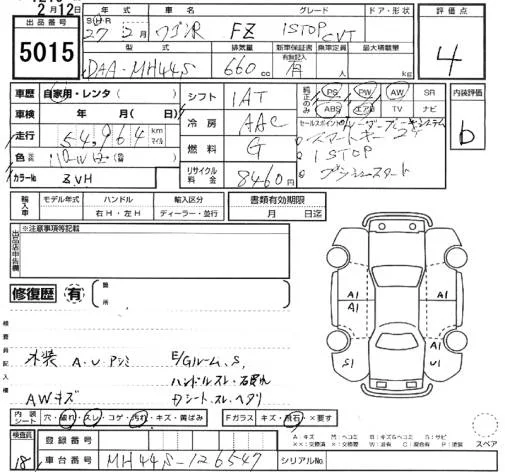 2月12日
出品番号
5015
年式
車名
グレード
ドア・形状
S H R 27年 2月
ワゴンR
FZ
ISTOP CVT
型式
排気量
新車保証書
有無記入
乗車定員
最大積載量
DAA-MH44S
660 cc
有
人
kg
評価点
4
車歴
自家用・レンタ( )
車検
年 月( )
走行
54,964
km
マイル
色
カラーNo
ZVH
シフト
IAT
冷房
AAC
燃料
G
リサイクル料金
8460円
純正のみ
PS PW AW SR
ABS エアB TV ナビ
セールスポイント
スマートキー
ISTOP
プッシュスタート
内装評価
b
輸入車
モデル年式
ハンドル
右H・左H
輸入区分
ディーラー・並行
書類有効期限
月 日迄
出品店申告欄
※注意事項等記載
修復歴
有
箇所
検査員記入欄
外装 A・U
E/Gルーム、S
ハンドルスレ・
AWキズ
シートスレ・ヘタリ
A1
A1
S1
A1
U1
内装シート
穴・破れ・スレ・コゲ・汚れ・キズ・黄ばみ
Fガラス
キズ・飛石・×要す
スペア
検査員
18
登録番号
車台番号
MH44S-126547
シリアルNo.